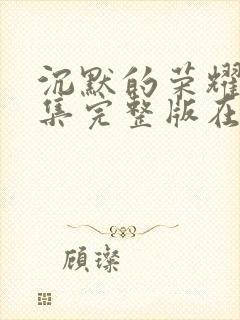 沉默的荣耀
集完整版在
顾璨